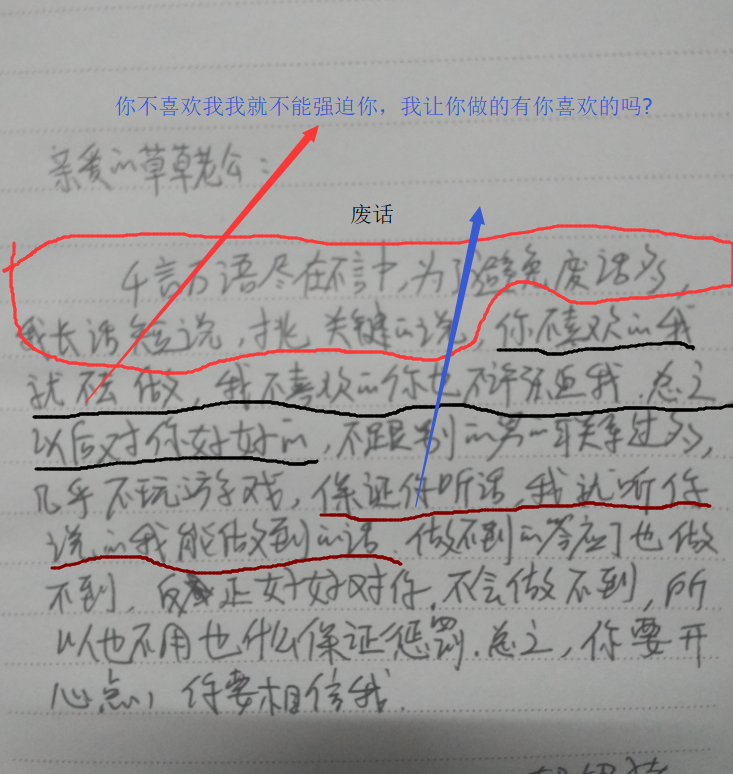 你不喜欢我我就不能强迫你，我让你做的有你喜欢的吗?
亲爱的草草老公：
废话
千言万语尽在不言中，为了避免废话多，
我长话短说，挑关键的说，你不喜欢的我
就不去做，我不喜欢的你也不许强迫我．总之
以后对你好好的，不跟别的男的联系过多，
几乎不玩游戏，保证你听话，我就听你
说的我能做到的话．做不到的答应了也做
不到，反正好好对你，不会做不到，所
以也不用也什么保证惩罚．总之，你要开
心点，你要相信我．